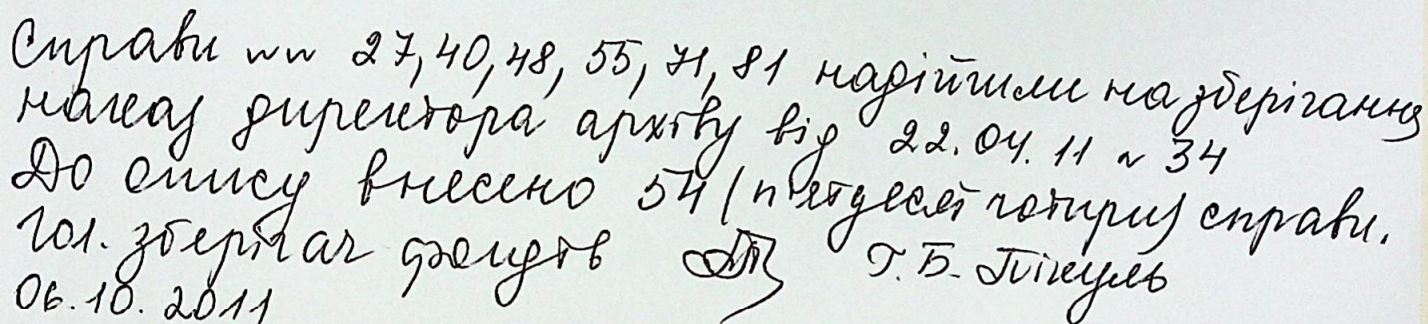 Справи №№ 27, 40, 48, 55, 71, 81 надійшли на зберігання
наказ директора архіву від 22.04.11 № 34
До опису внесено 54 (п'ятдесят чотири) справи.
Гол. зберігач фондів Г.Б. Пікуль
06.10.2011